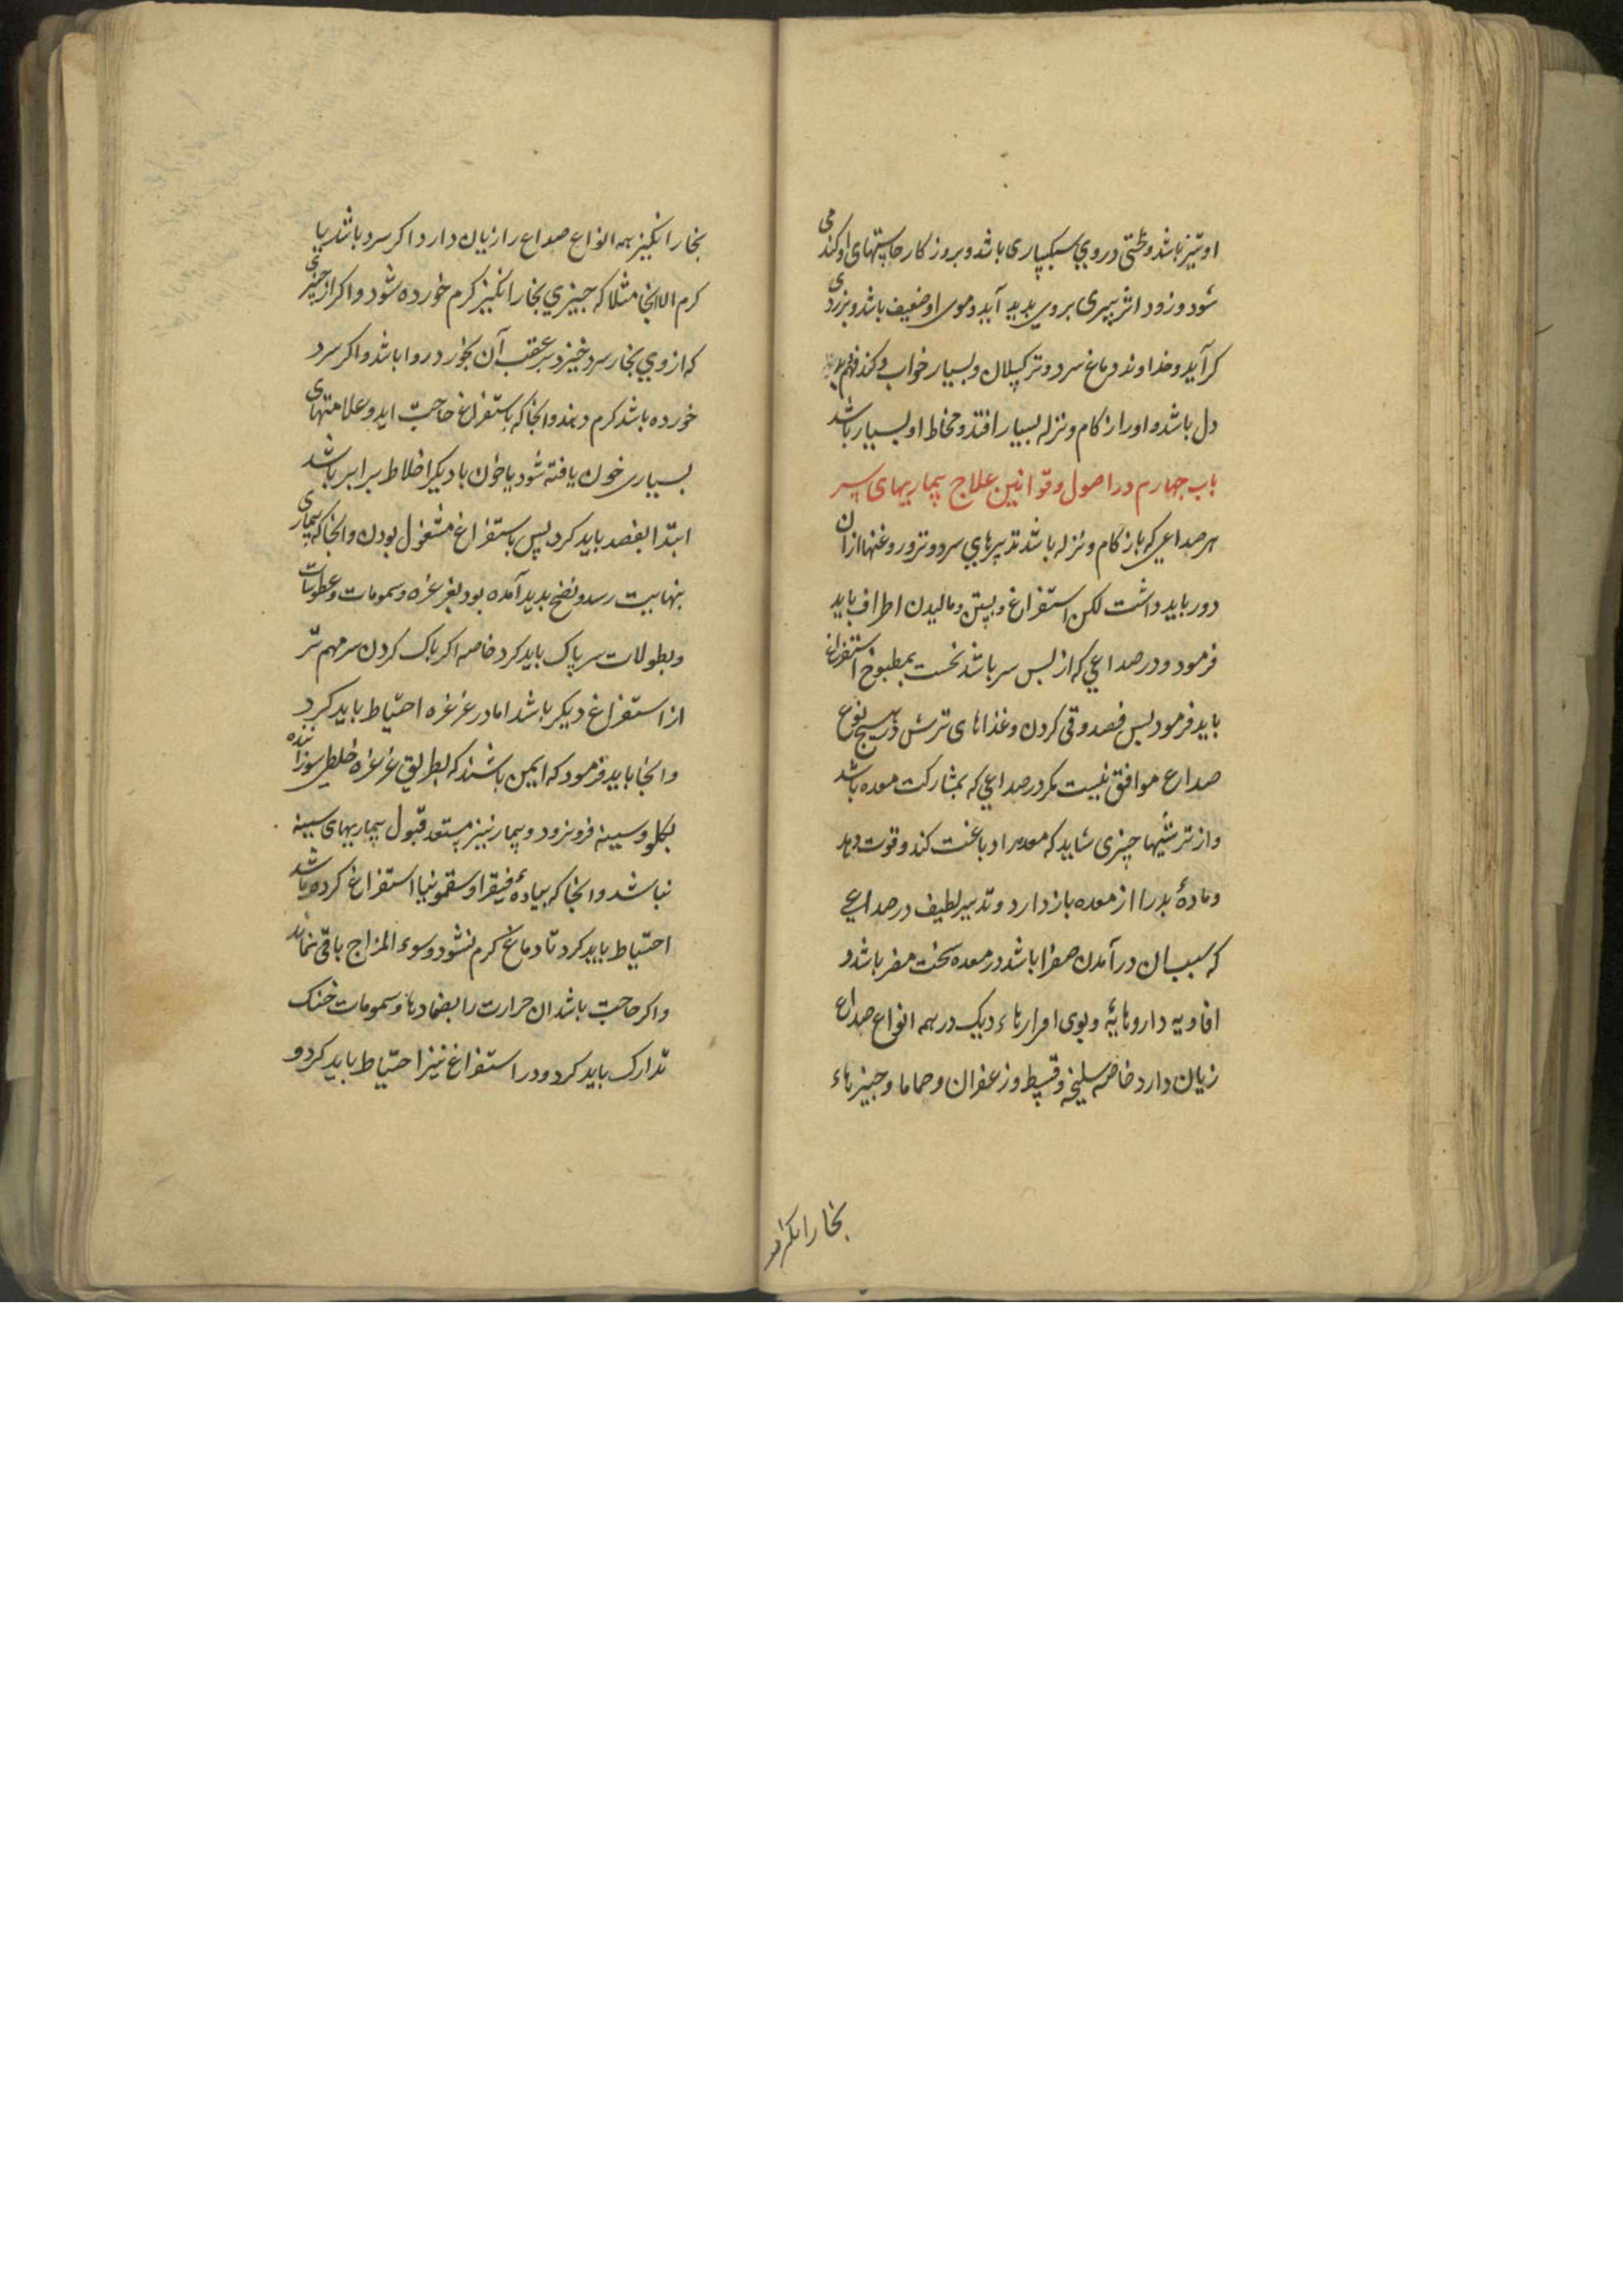 او تیز باشد و خشتی در وی سبکساری باشد و بروز کار حاستهای او کند می
شود و زود اثر پیری بروی بدید آید و موی او ضعیف باشد و بزردی
کرآید و خداوند دماغ سرد و تر کسلان و بسیار خواب و کند فهم
دل باشد و او را زکام و نزله بسیار افتد و مخاط او بسیار باشد
باب چهارم در اصول و قوانین علاج بیماریهای سر
هر صداعی که با زکام و نزله باشد تدبیرهای سرد و تر و روغنها از ان
دور باید داشت لکن استفراغ و بستن و مالیدن اطراف باید
فرمود و در صداعی که از یبس سر باشد نخست بمطبوخ استفراغ
باید فرمود پس فصد و قی کردن و غذاهای ترش در هیچ نوع
صداع موافق نیست مکر در صداعی که بمشارکت معده باشد
و از ترشیها چیزی شاید که معده را دباغت کند و قوت دهد
و مادۀ بد را از معده باز دارد و تدبیر لطیف در صداعی
که سبب ان در آمدن صفرا باشد در معده سخت مضر باشد و
افاویه داروهایۀ و بوی افزارهاء دیک در همه انواع صداع
زیان دارد خاصه سلیخه و قسط و زعفران و حماما و چیزهاء
بخار انکیز
بخار انکیز همه انواع صداع را زیان دارد اکر سرد باشد یا
کرم الا انجا مثلا که چیزی بخار انکیز کرم خورده شود و اکر از چیزی
که از وی بخار سرد خیزد بر عقب آن بخورد روا باشد و اکر سرد
خورده باشد کرم دهند و انجا که باستفراغ حاجت اید و علامتهای
بسیاری خون یافته شود یا خون با دیکر اخلاط برابر باشد
ابتدا بفصد باید کرد پس باستفراغ مشغول بودن و انجا که بیماری
بنهایت رسد و نضج بدید آمده بود بغرغره و سمومات و عطوسات
و بطولات سر پاک باید کرد خاصه اکر پاک کردن سر مهم تر
از استفراغ دیکر باشد اما در غرغره احتیاط باید کرد
و انجا باید فرمود که ایمن باشند که بطریق غرغره خلطی سوزاننده
بکلو و سینه فرو نرود و بیمار نیز مستعد قبول بیماریهای سینه
نباشد و انجا که بیادۀ فیقرا و سقمونیا استفراغ کرده باشد
احتیاط باید کرد تا دماغ کرم نشود و سوء المزاج باقی نماند
و اکر حاجت باشد ان حرارت را بضمادها و سمومات خنک
تدارک باید کرد و در استفراغ نیز احتیاط باید کرد و